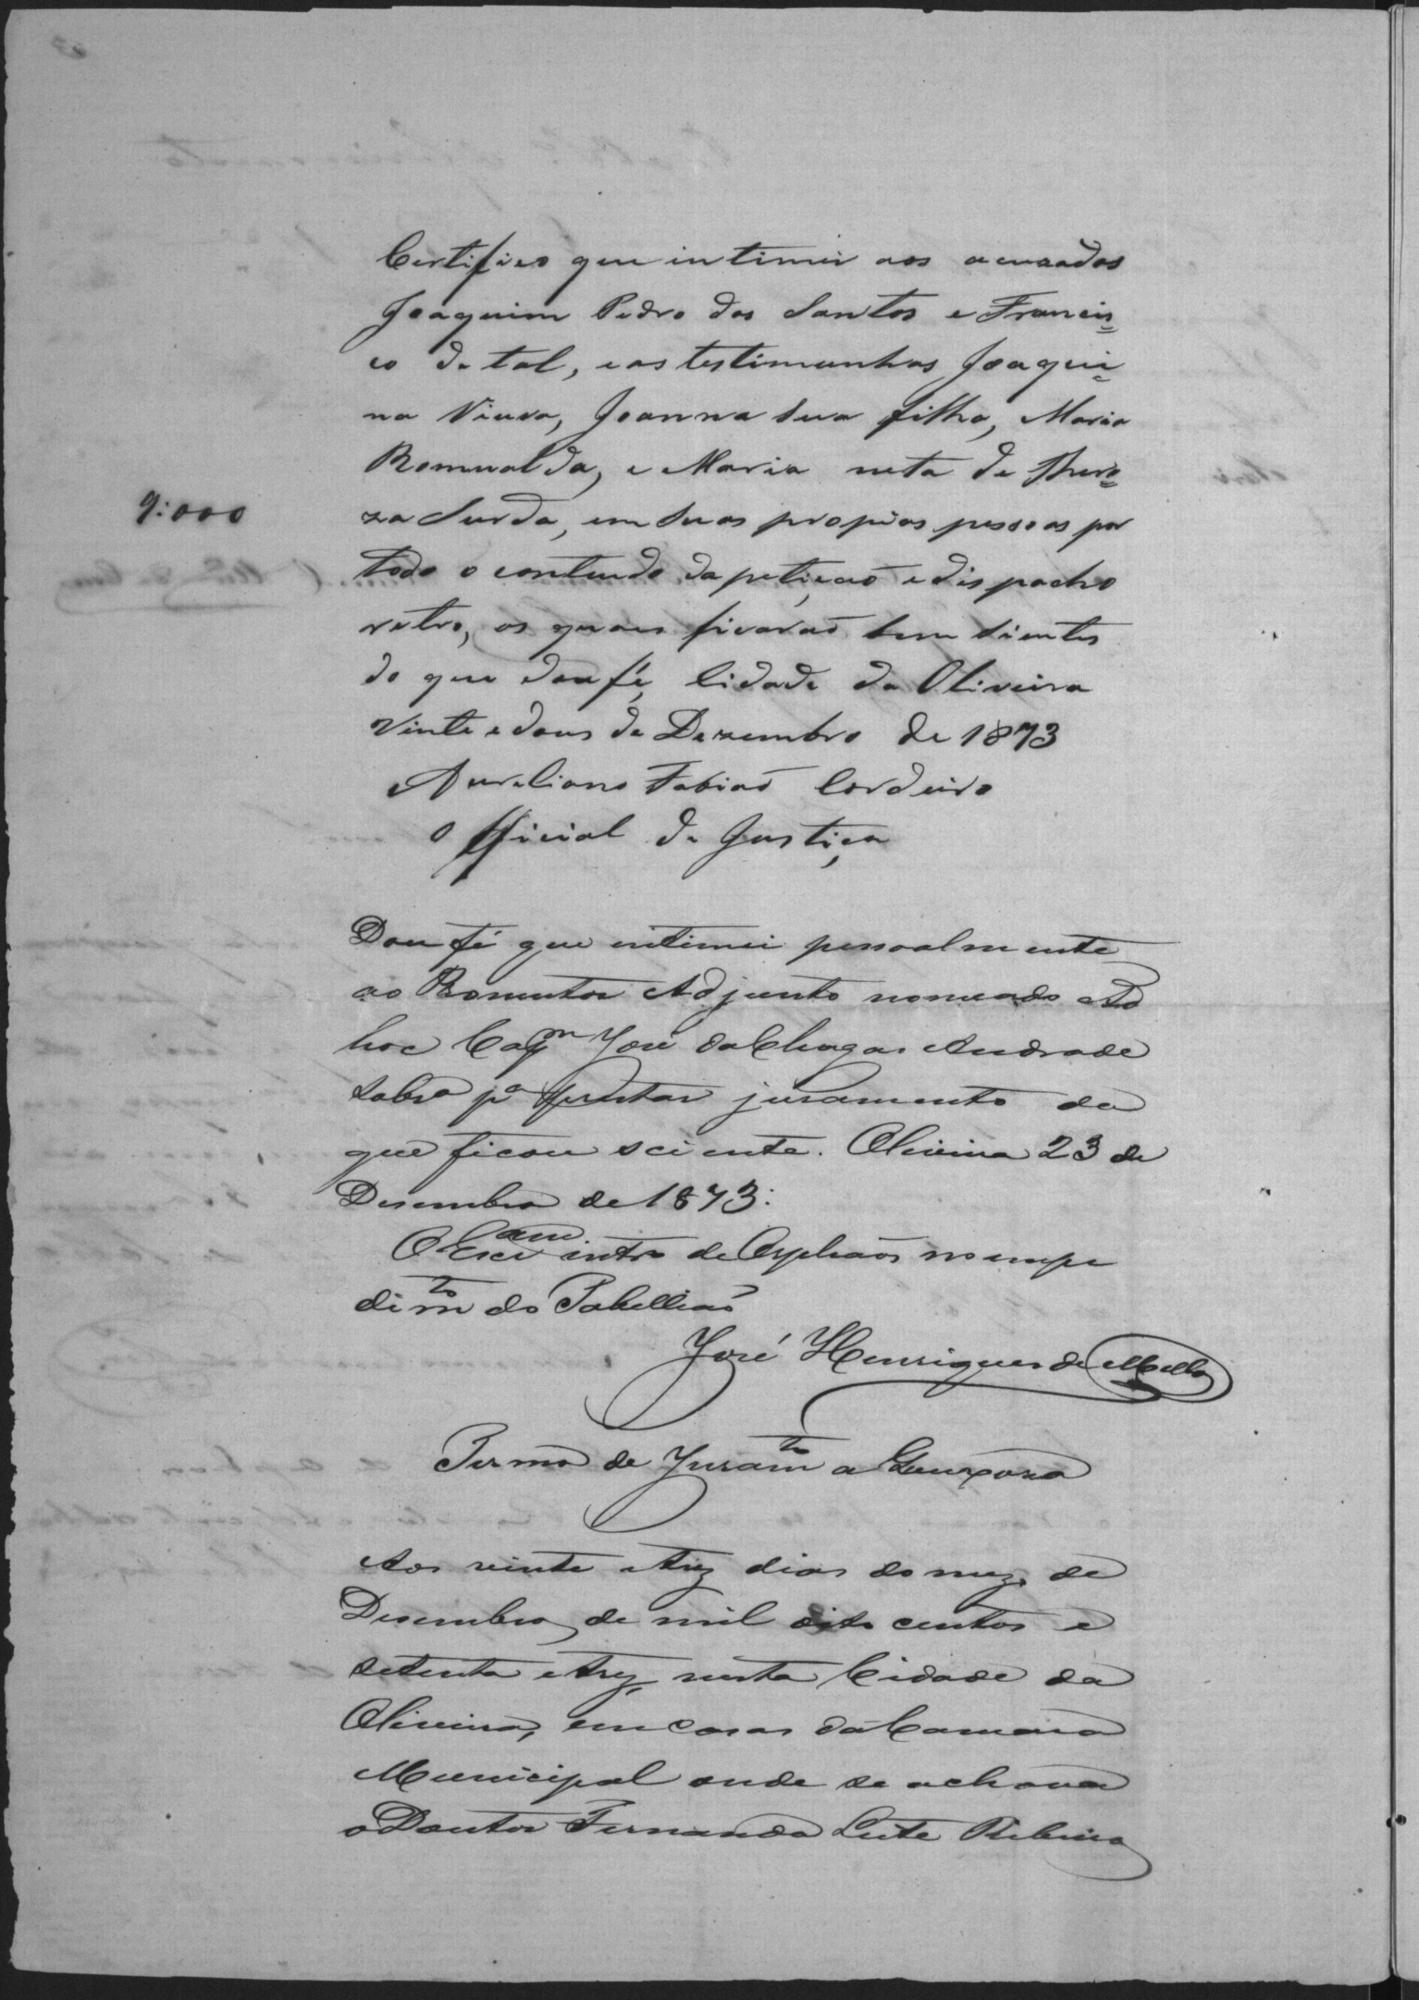 Certifico que intimei aos acuzados
Joaquim Pedro dos Santos e Francis=
co de tal, e as testimunhas Joaqui=
na Viuva, Joanna Sua filha, Maria
Romualda, e Maria neta de There=
za Surda, em Suas propias pessoas por
9:000
todo o conteudo da petiçaõ e dispacho
retro, os quaes ficaraõ bem sientes
do que dou fé, Cidade da Oliveira
Vinte e dous de Dezembro de 1873
Aureliano Fabiaõ Cordeiro
Official de Justiça
Dou fé que intimei pessoalmente
ao Promutor Adjunto nomeado Ad
hoc Capm José das Chagas Andrade
sobro pa prestar juramento do
que ficou sciente. Oliveira 23 de
Desembro de 1873:
O Escram intro de Orphaõs no empe
dimto do Tabelliaõ
José Henriques de Mello
Termo de Juramto a
Aos vinte e trez dias do mez de
Desembro de mil oito centos e
setenta e trez nesta Cidade da
Oliveira, em casas da Camara
Municipal onde se achava
o Doutor Fernando Leite Ribeiro